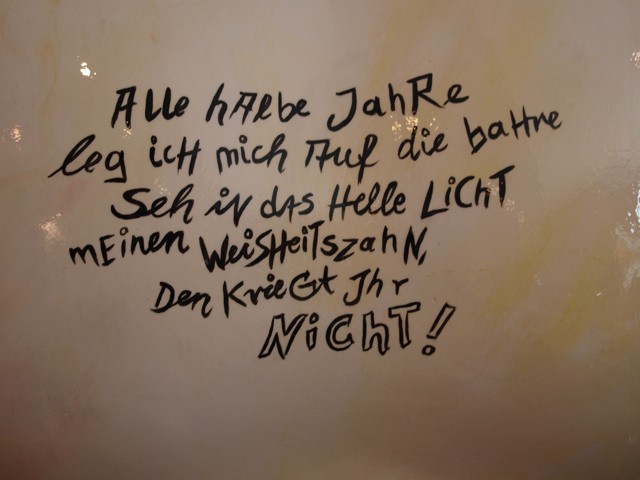 Alle hAlbe JahRe
leg icH mich Auf die bAHre
Seh in dAs Helle LiCHT
mEinen WeiSHeitszahN,
Den KrieGt Jhr
NiCHT!